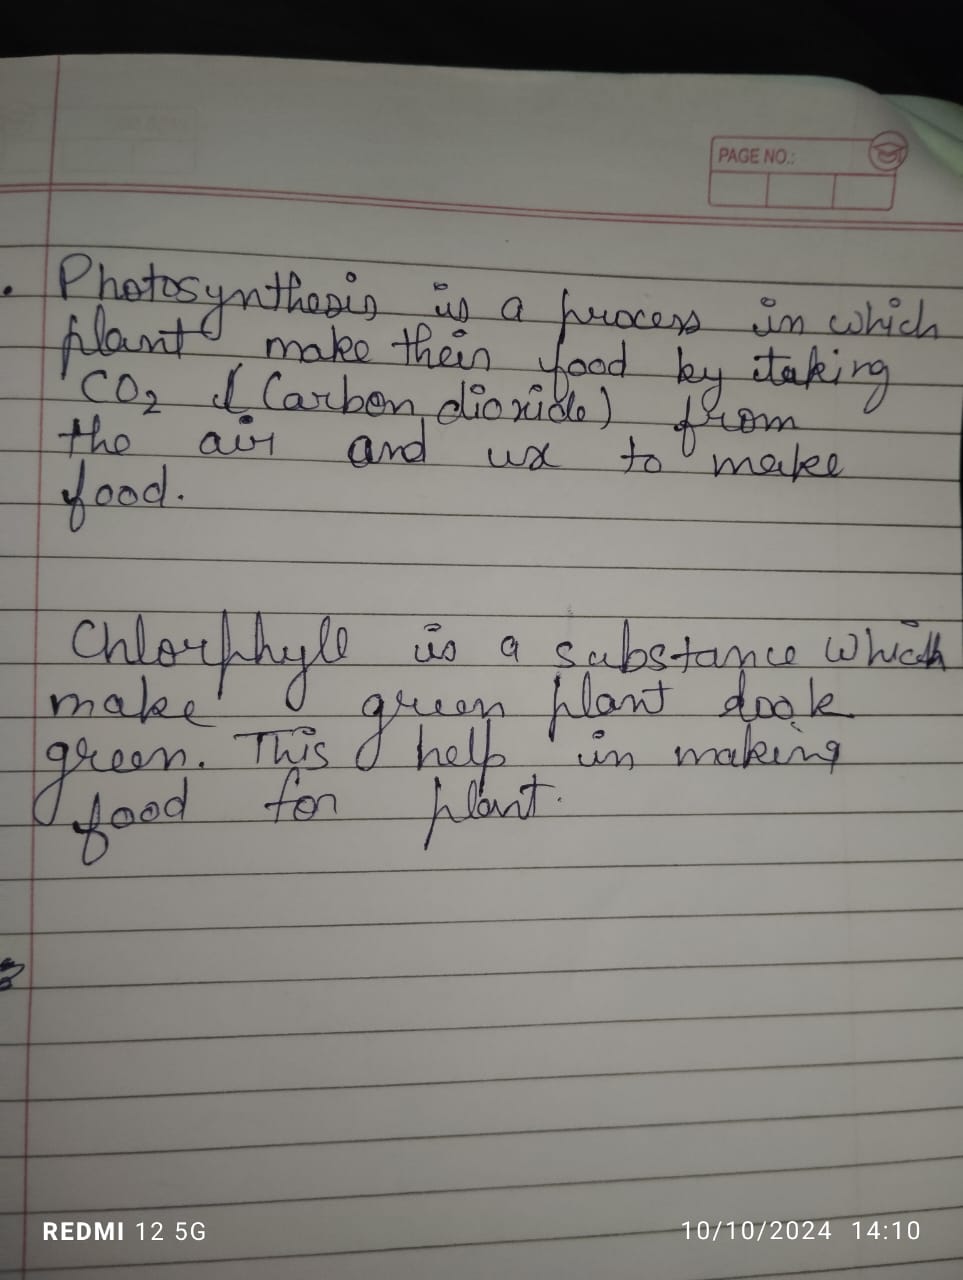 PAGE NO.:
Photosynthesis is a process in which
plant make their food by taking
CO₂ (Carbon dioxide) from
the air and use to make
food.
Chlorphyll is a substance which
make green plant look
green. This help in making
food for plant.
REDMI 12 5G
10/10/2024 14:10